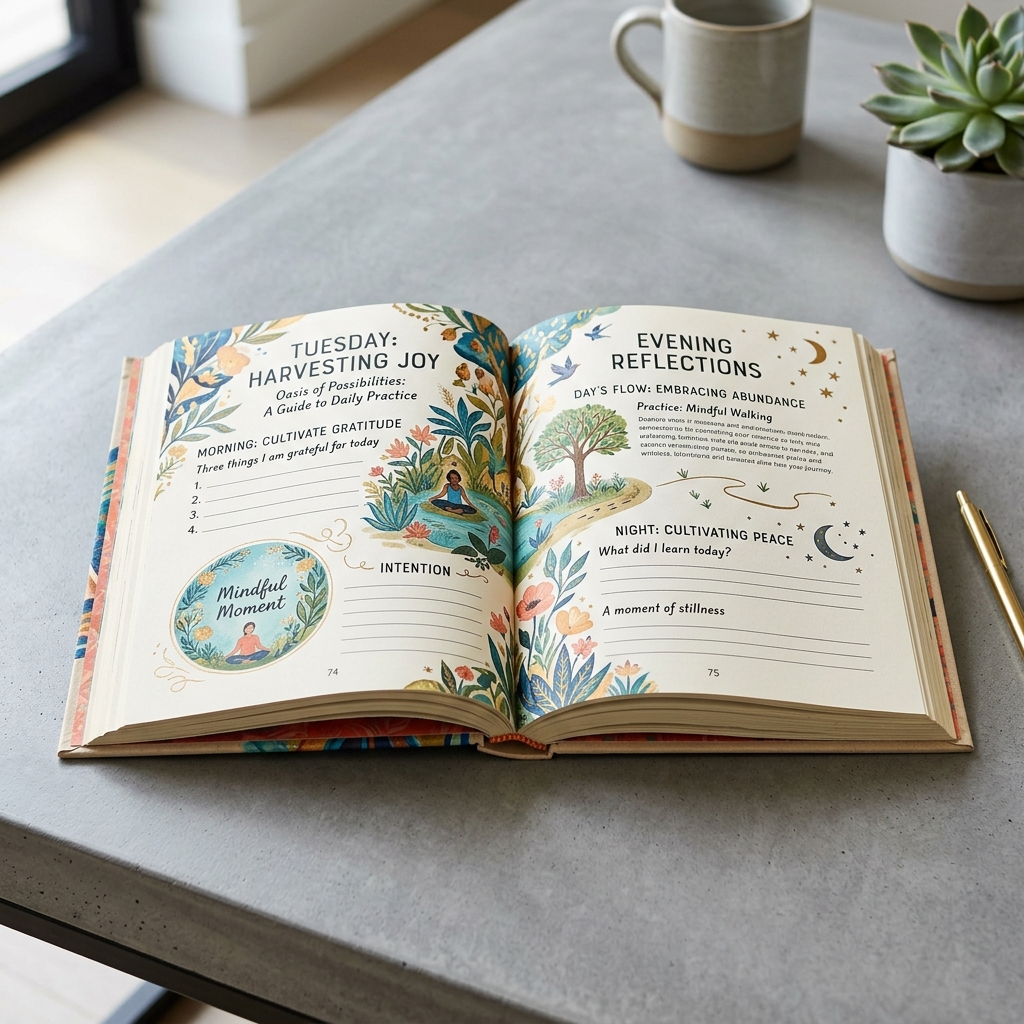 TUESDAY:
HARVESTING JOY
Oasis of Possibilities:
A Guide to Daily Practice
MORNING: CULTIVATE GRATITUDE
Three things I am grateful for today
1.
2.
3.
4.
Mindful
Moment
INTENTION
74
EVENING
REFLECTIONS
DAY'S FLOW: EMBRACING ABUNDANCE
Practice: Mindful Walking
your journey.
NIGHT: CULTIVATING PEACE
What did I learn today?
A moment of stillness
75